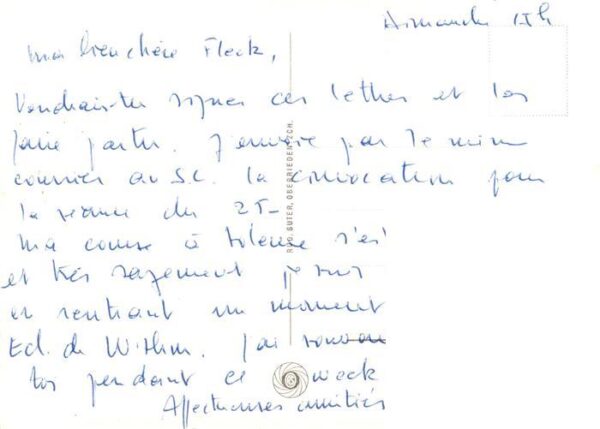 Dimanche 17h
Ma bien chère Fleck,
Voudrais-tu signer ces lettres et les
faire partir. J'envoie par le même
courrier au S.C. la convocation pour
la séance du 25-
Ma course à
et très sagement je suis
en rentrant un moment
Ed. de W. J'ai
pendant ce week
Affectueuses amitiés
RUD. SUTER, OBERRIEDEN-ZCH.